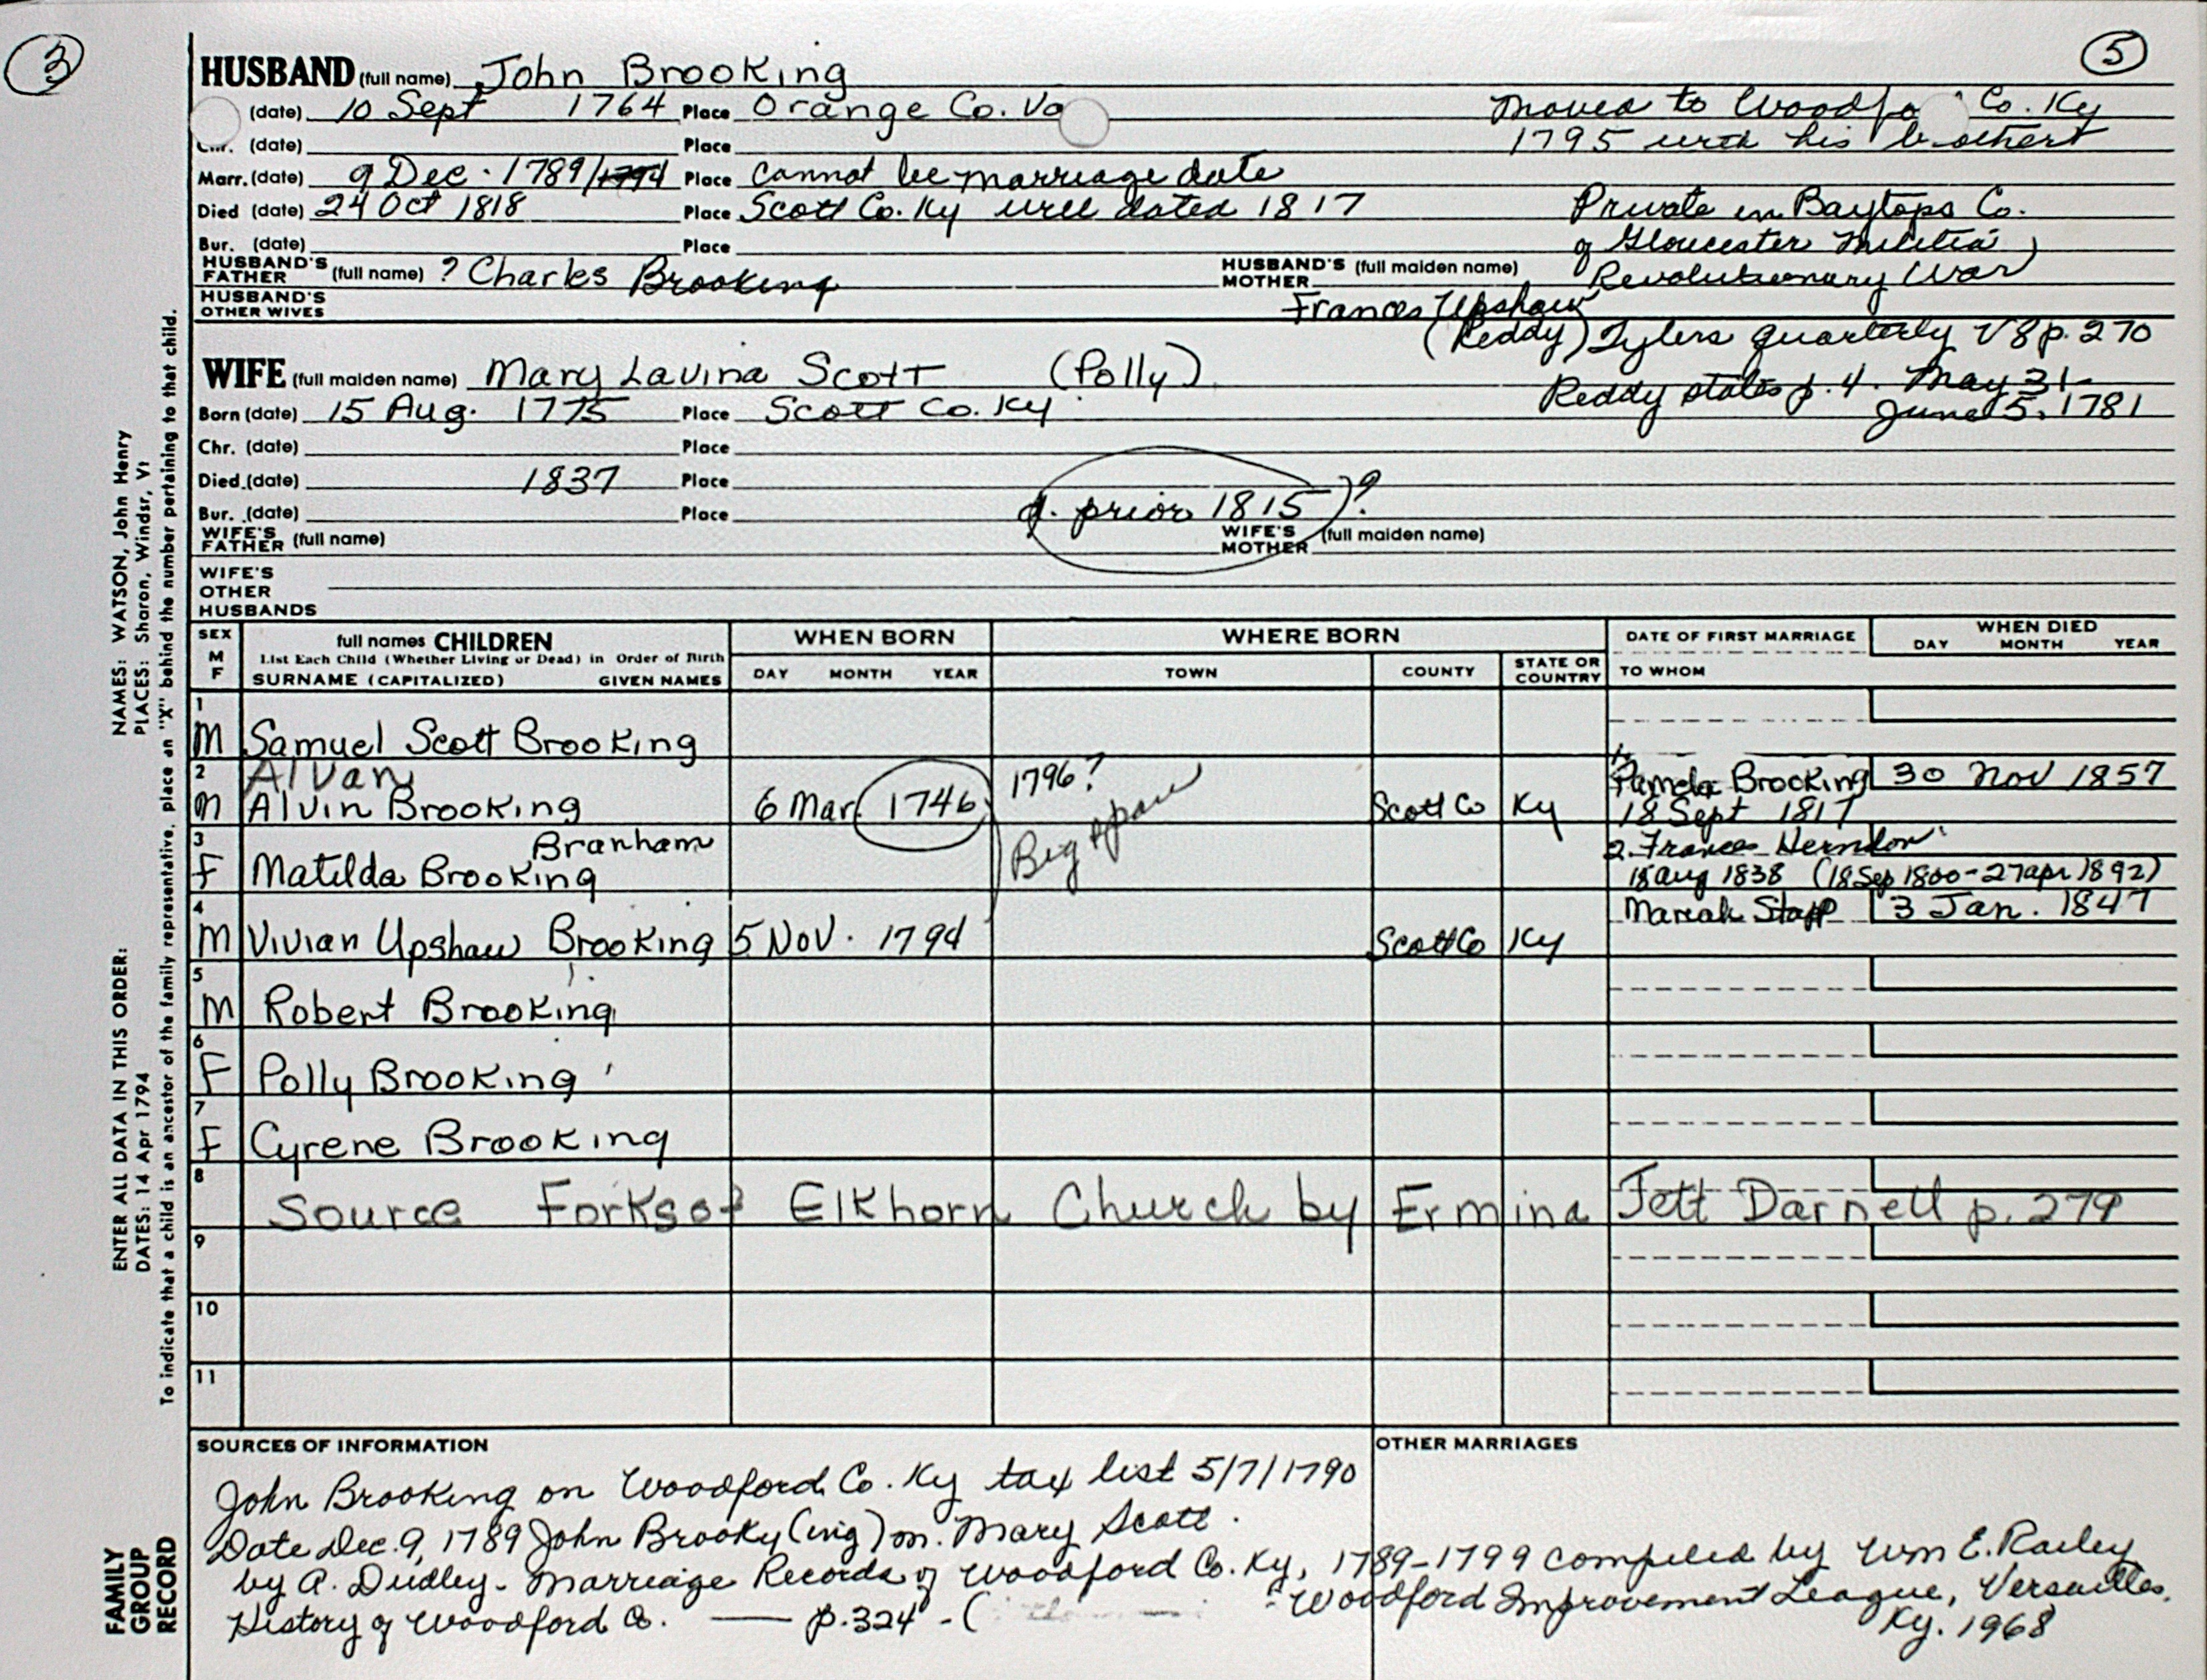 3
5
HUSBAND (full name) John Brooking
(date) 10 Sept 1764 Place Orange Co. Va
moved to Woodfo Co. Ky
Chr. (date) Place
1795 with his brothers
Marr. (date) 9 Dec. 1789/1794 Place cannot be marriage date
Died (date) 24 Oct 1818 Place Scott Co. Ky will dated 1817
Private in Baytops Co.
Bur. (date) Place
of Gloucester Militia,
HUSBAND'S FATHER (full name) ? Charles Brooking
HUSBAND'S MOTHER (full maiden name)
Revolutionary War
Frances Upshaw
HUSBAND'S OTHER WIVES
(Reddy) Tylers quarterly V8 p. 270
WIFE (full maiden name) Mary Lavina Scott (Polly)
Reddy states p. 4. May 31-
June 5, 1781
Born (date) 15 Aug. 1775 Place Scott Co. Ky
Chr. (date) Place
Died (date) 1837 Place
d. prior 1815)?
Bur. (date) Place
WIFE'S FATHER (full name)
WIFE'S MOTHER (full maiden name)
WIFE'S OTHER HUSBANDS
SEX M F
full names CHILDREN
List Each Child (Whether Living or Dead) in Order of Birth
SURNAME (CAPITALIZED) GIVEN NAMES
WHEN BORN
DAY MONTH YEAR
WHERE BORN
TOWN COUNTY STATE OR COUNTRY
DATE OF FIRST MARRIAGE
TO WHOM
WHEN DIED
DAY MONTH YEAR
1
M Samuel Scott Brooking
2 Alvan
M Alvin Brooking 6 Mar. 1746 1796? Scott Co Ky
1. Pamela Brooking 30 Nov 1857
18 Sept 1817
Big span
3 Branham
F Matilda Brooking
2. Frances Herndon
18 aug 1838 (18 Sep 1800-27 apr 1892)
4
Mariah Stapp 3 Jan. 1847
M Vivian Upshaw Brooking 5 Nov. 1794 Scott Co Ky
5
M Robert Brooking
6
F Polly Brooking
7
F Cyrene Brooking
8
Source Forks of Elkhorn Church by Ermina Jett Darnell p. 279
9
10
11
SOURCES OF INFORMATION
OTHER MARRIAGES
John Brooking on Woodford Co. Ky tax list 5/7/1790
Date Dec. 9, 1789 John Brooky (ing) m. Mary Scott.
by A. Dudley - Marriage Records of Woodford Co. Ky, 1789-1799 compiled by Wm E. Railey
History of Woodford Co. — p. 324 - (
Woodford Improvement League, Versailles,
Ky. 1968
ENTER ALL DATA IN THIS ORDER:
NAMES: WATSON, John Henry
DATES: 14 Apr 1794
PLACES: Sharon, Windsr, Vt
To indicate that a child is an ancestor of the family representative, place an "X" behind the number pertaining to that child.
FAMILY
GROUP
RECORD